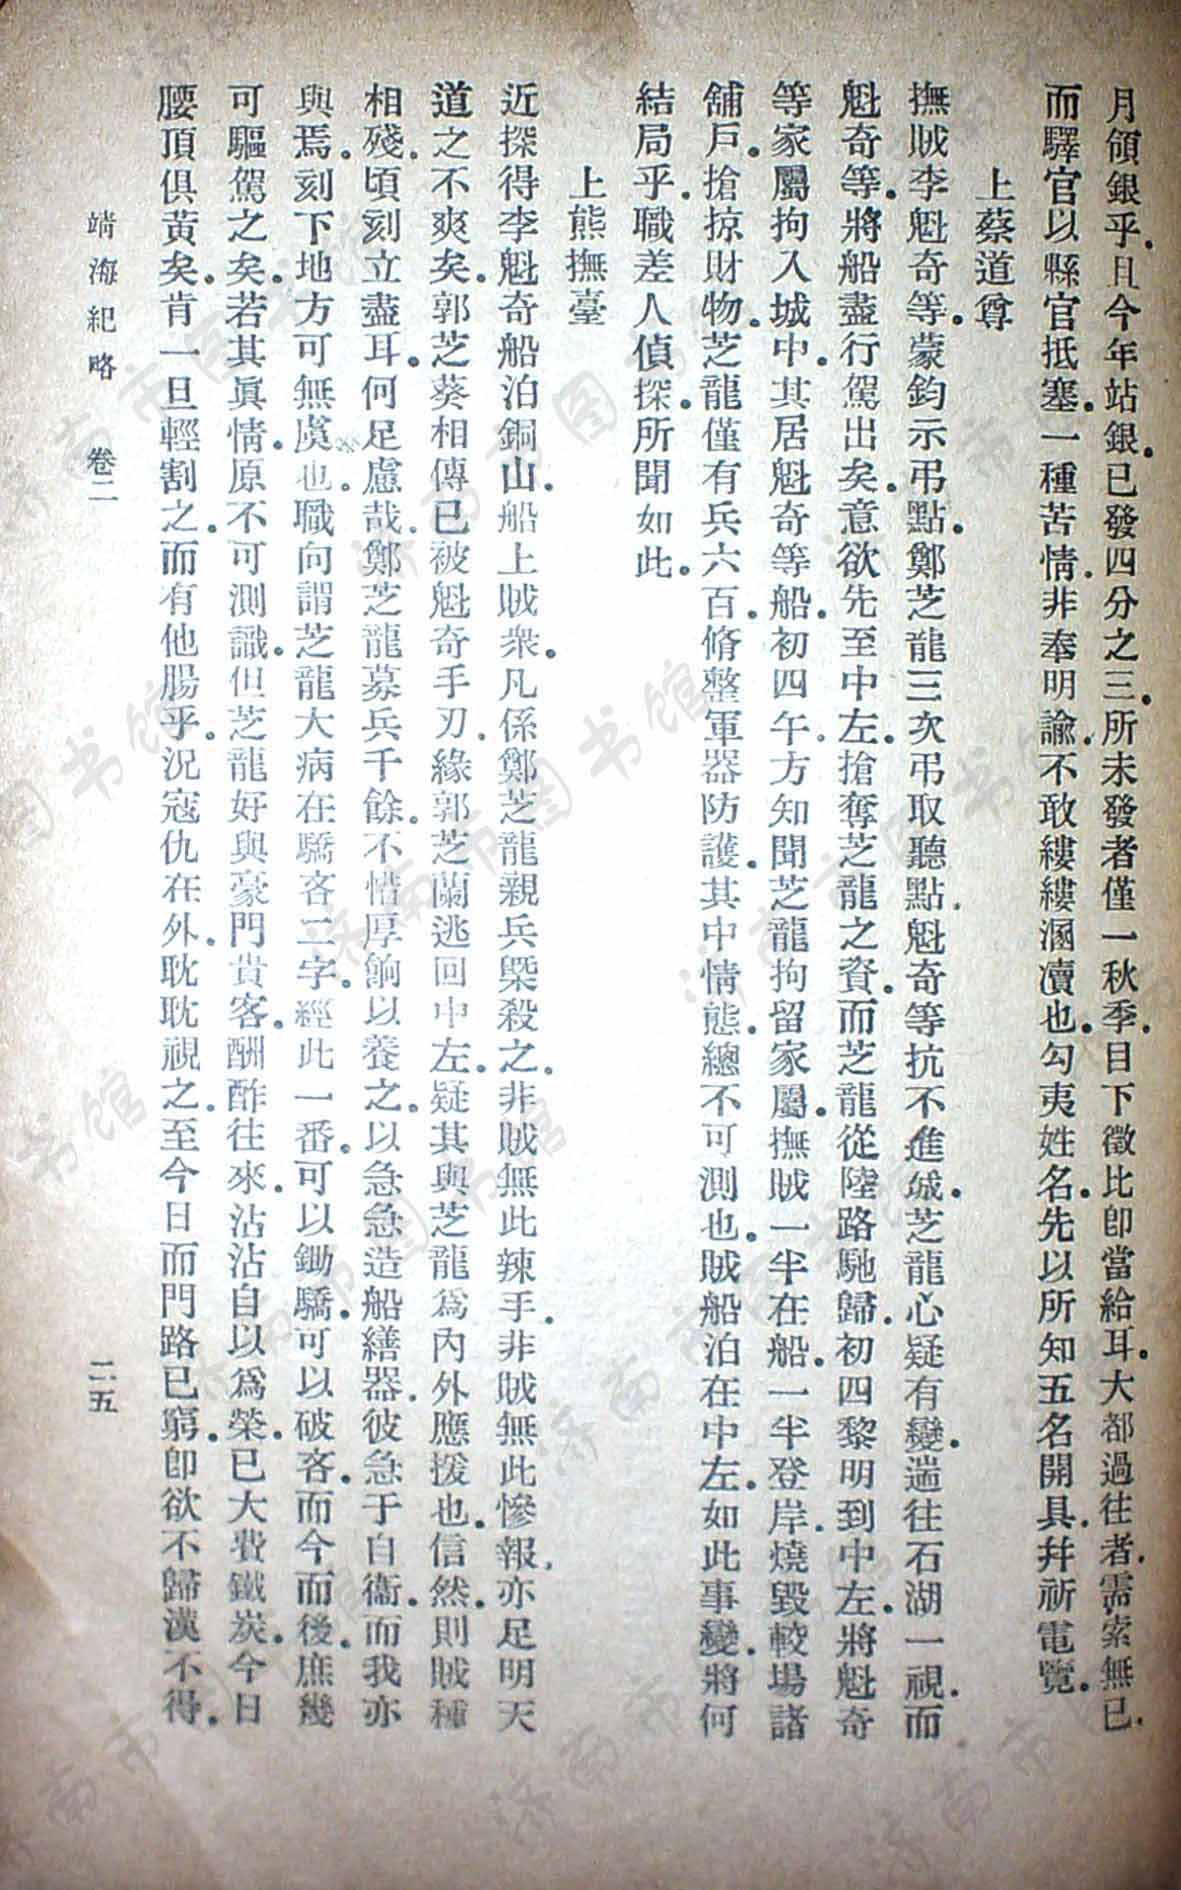 月領銀乎．且今年站銀．已發四分之三．所未發者僅一秋季．目下徵比卽當給耳．大都過往者．需索無已．
而驛官以縣官抵塞．一種苦情．非奉明諭．不敢縷縷溷瀆也．勾夷姓名．先以所知五名開具．幷祈電覽．
上蔡道尊
撫賊李魁奇等．蒙鈞示弔點．鄭芝龍三次弔取聽點．魁奇等抗不進城．芝龍心疑有變．遄往石湖一視．而
魁奇等．將船盡行駕出矣．意欲先至中左．搶奪芝龍之資．而芝龍從陸路馳歸．初四黎明到中左．將魁奇
等家屬拘入城中．其居魁奇等船．初四午．方知聞芝龍拘留家屬．撫賊一半在船．一半登岸．燒毀較場諸
舖戶．搶掠財物．芝龍僅有兵六百．脩整軍器防護．其中情態．總不可測也．賊船泊在中左．如此事變．將何
結局乎．職差人偵探．所聞如此．
上熊撫臺
近探得李魁奇船泊銅山．船上賊衆．凡係鄭芝龍親兵槩殺之．非賊無此辣手．非賊無此慘報．亦足明天
道之不爽矣．郭芝葵相傳已被魁奇手刃．緣郭芝蘭逃回中左．疑其與芝龍爲內外應援也．信然．則賊種
相殘．頃刻立盡耳．何足慮哉．鄭芝龍募兵千餘．不惜厚餉以養之．以急急造船繕器．彼急于自衞．而我亦
與焉．刻下地方可無虞也．職向謂芝龍大病在驕客二字．經此一番．可以鋤驕．可以破客．而今而後．庶幾
可驅駕之矣．若其眞情．原不可測識．但芝龍好與豪門貴客．酬酢往來．沾沾自以爲榮．已大費鐵炭．今日
腰頂俱黃矣．肯一旦輕割之．而有他腸乎．況寇仇在外．耽耽視之．至今日而門路已窮．卽欲不歸漢不得．
靖海紀略 卷二 二五
济南市图书馆